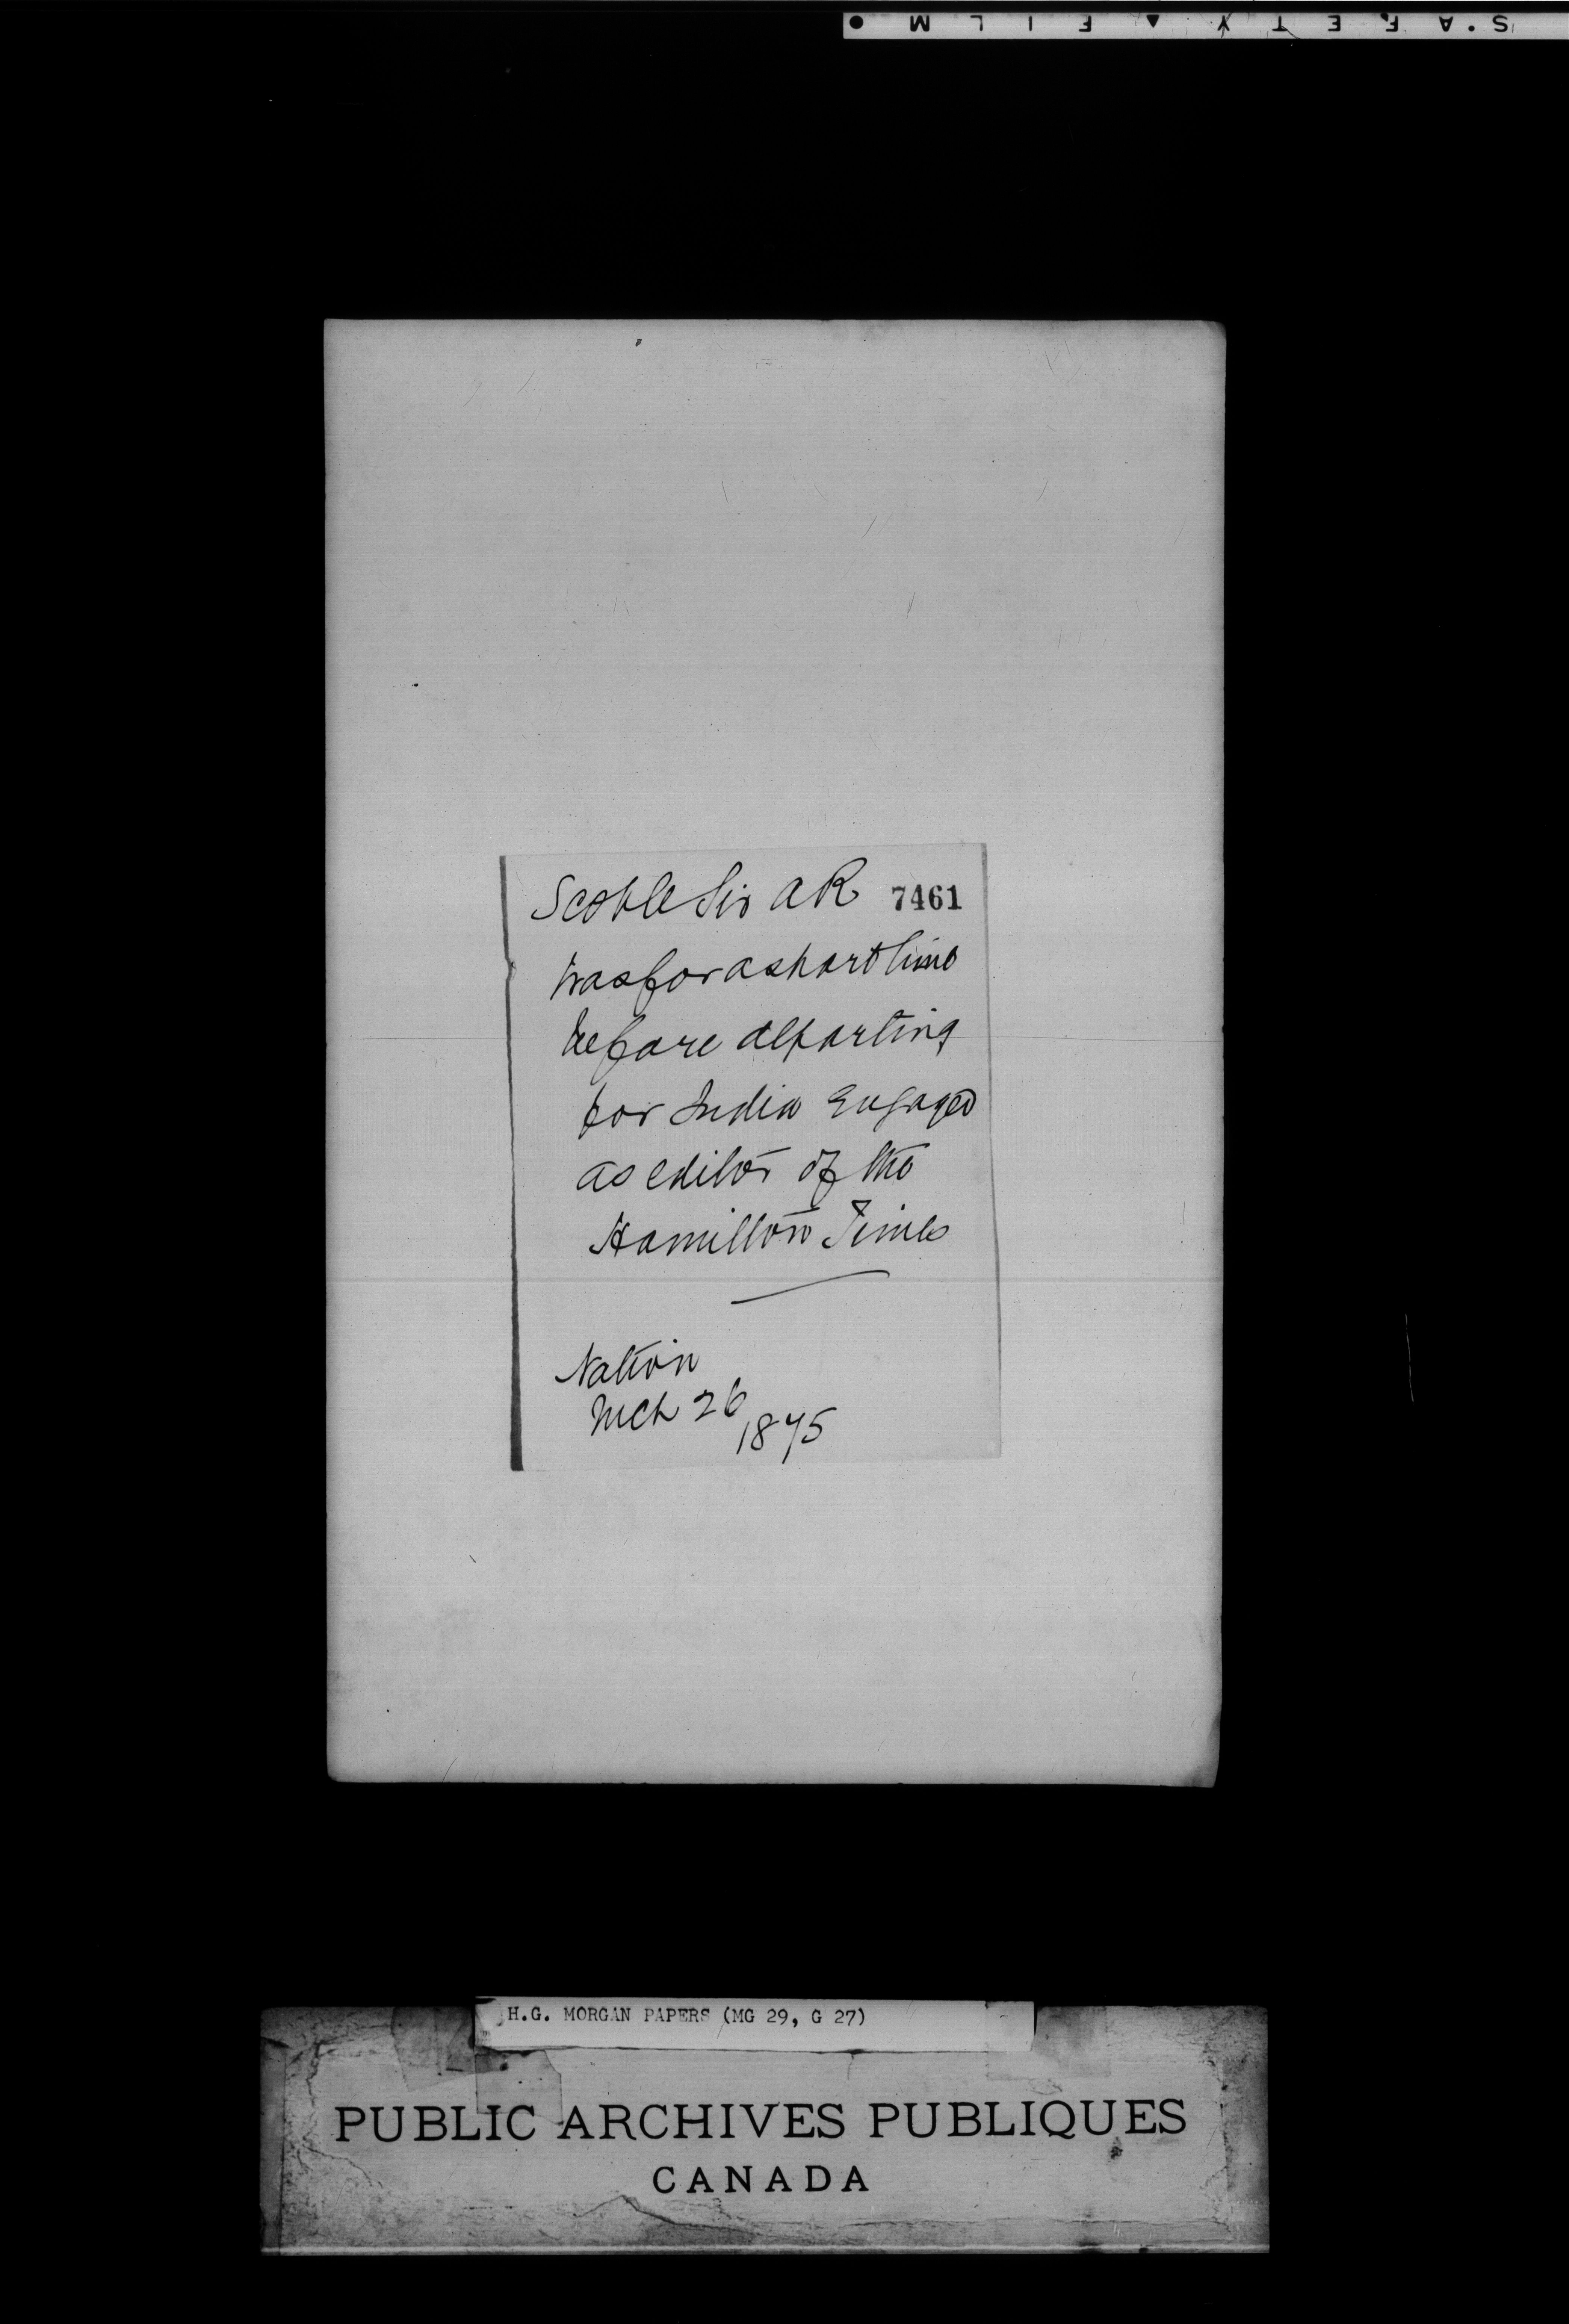 SAFETY FILM
Scoble Sir A R 7461
was for a short time
before departing
for India engaged
as editor of the
Hamilton Times
Nation
Mch 26
1875
H.G. MORGAN PAPERS (MG 29, G 27)
PUBLIC ARCHIVES PUBLIQUES
CANADA